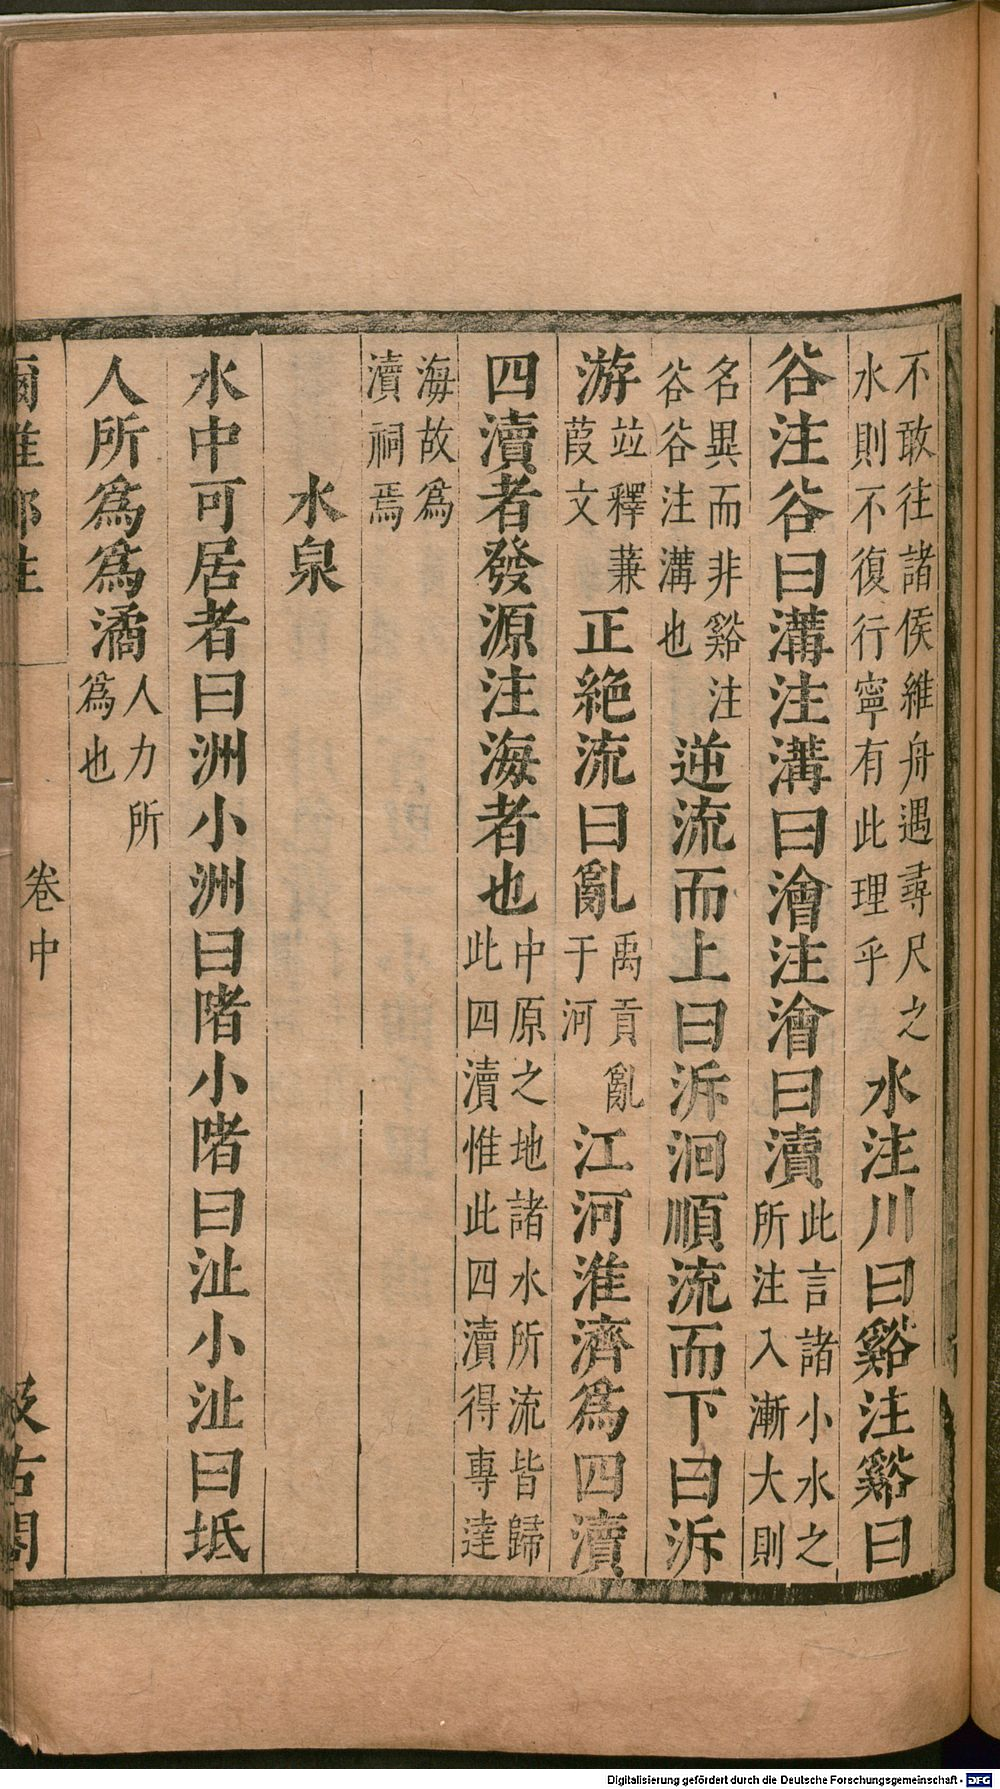 不敢往諸侯維舟遇尋尺之水則不復行寧有此理乎水注川曰谿注谿曰
谷注谷曰溝注溝曰澮注澮曰瀆此言諸小水之所注入漸大則
名異而非谿注谷谷注溝也逆流而上曰泝洄順流而下曰泝
游竝釋蒹葭文正絕流曰亂禹貢亂于河江河淮濟爲四瀆
四瀆者發源注海者也中原之地諸水所流皆歸此四瀆惟此四瀆得專達
海故爲瀆祠焉
水泉
水中可居者曰洲小洲曰陼小陼曰沚小沚曰坻
人所爲爲潏人力所爲也
爾雅鄭注 卷中 汲古閣
Digitalisierung gefördert durch die Deutsche Forschungsgemeinschaft - DFG